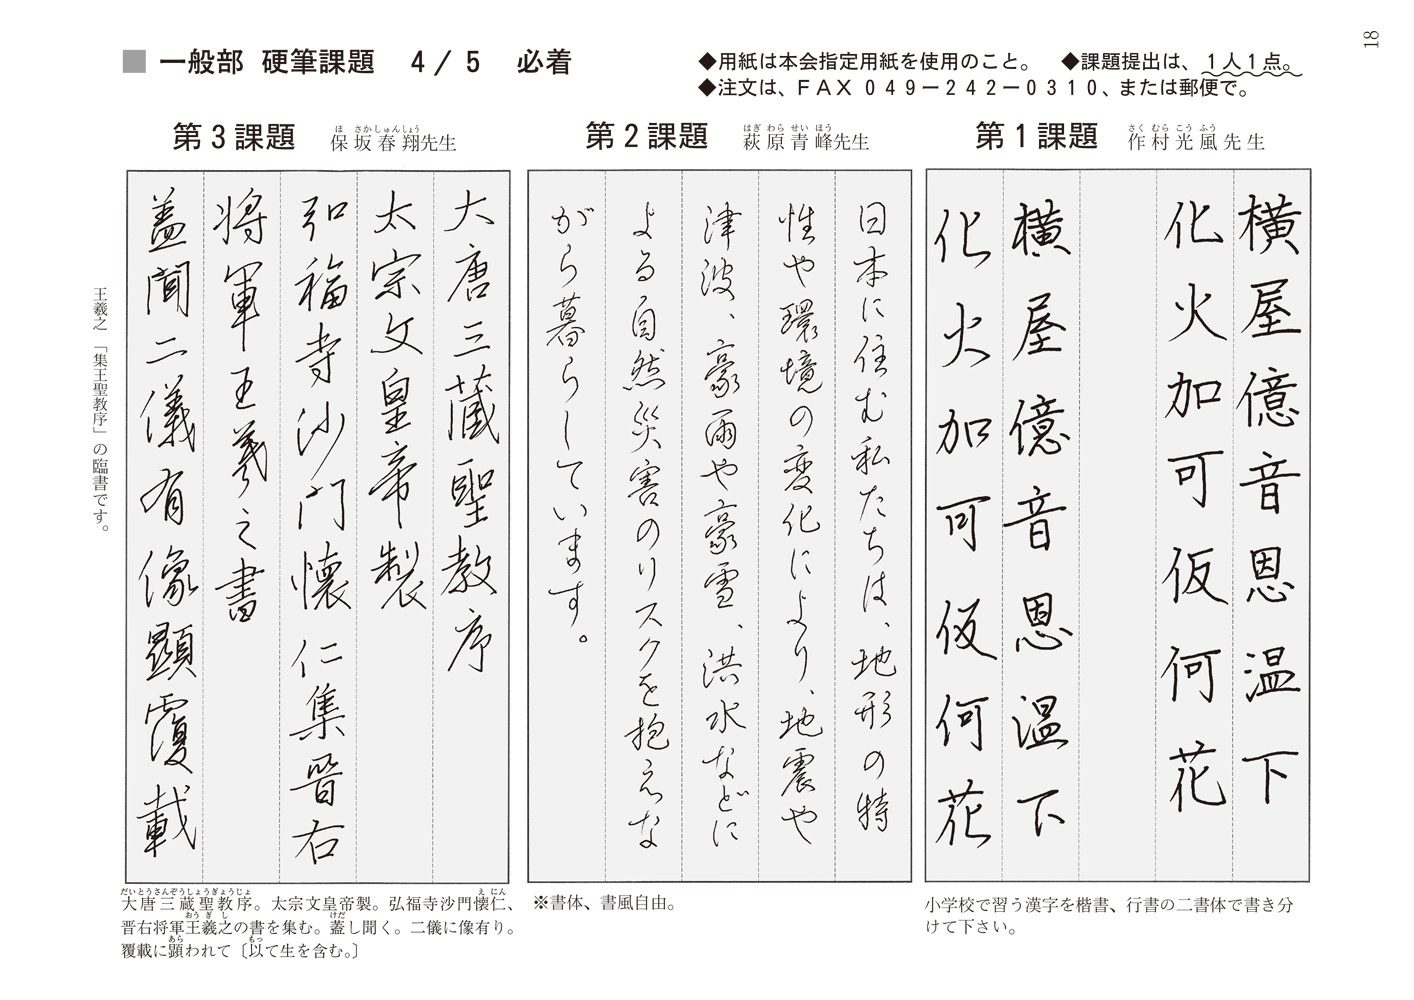 18
■ 一般部 硬筆課題 4/5 必着
◆用紙は本会指定用紙を使用のこと。 ◆課題提出は、1人1点。
◆注文は、FAX 049-242-0310、または郵便で。
第1課題 作村光風先生
さく むら こう ふう
横屋億音恩温下
化火加可仮何花
横屋億音恩温下
化火加可仮何花
小学校で習う漢字を楷書、行書の二書体で書き分
けて下さい。
第2課題 萩原青峰先生
はぎ わら せい ほう
日本に住む私たちは、地形の特
性や環境の変化により、地震や
津波、豪雨や豪雪、洪水などに
よる自然災害のリスクを抱えな
がら暮らしています。
※書体、書風自由。
第3課題 保坂春翔先生
ほ さかしゅんしょう
大唐三蔵聖教序
太宗文皇帝製
弘福寺沙門懐仁集晋右
将軍王羲之書
蓋聞二儀有像顕覆載
王羲之「集王聖教序」の臨書です。
だいとうさんぞうしょうぎょうじょ えにん
大唐三蔵聖教序。太宗文皇帝製。弘福寺沙門懐仁、
おうぎし けだ
晋右将軍王羲之の書を集む。蓋し聞く。二儀に像有り。
あら もっ
覆載に顕われて〔以て生を含む。〕